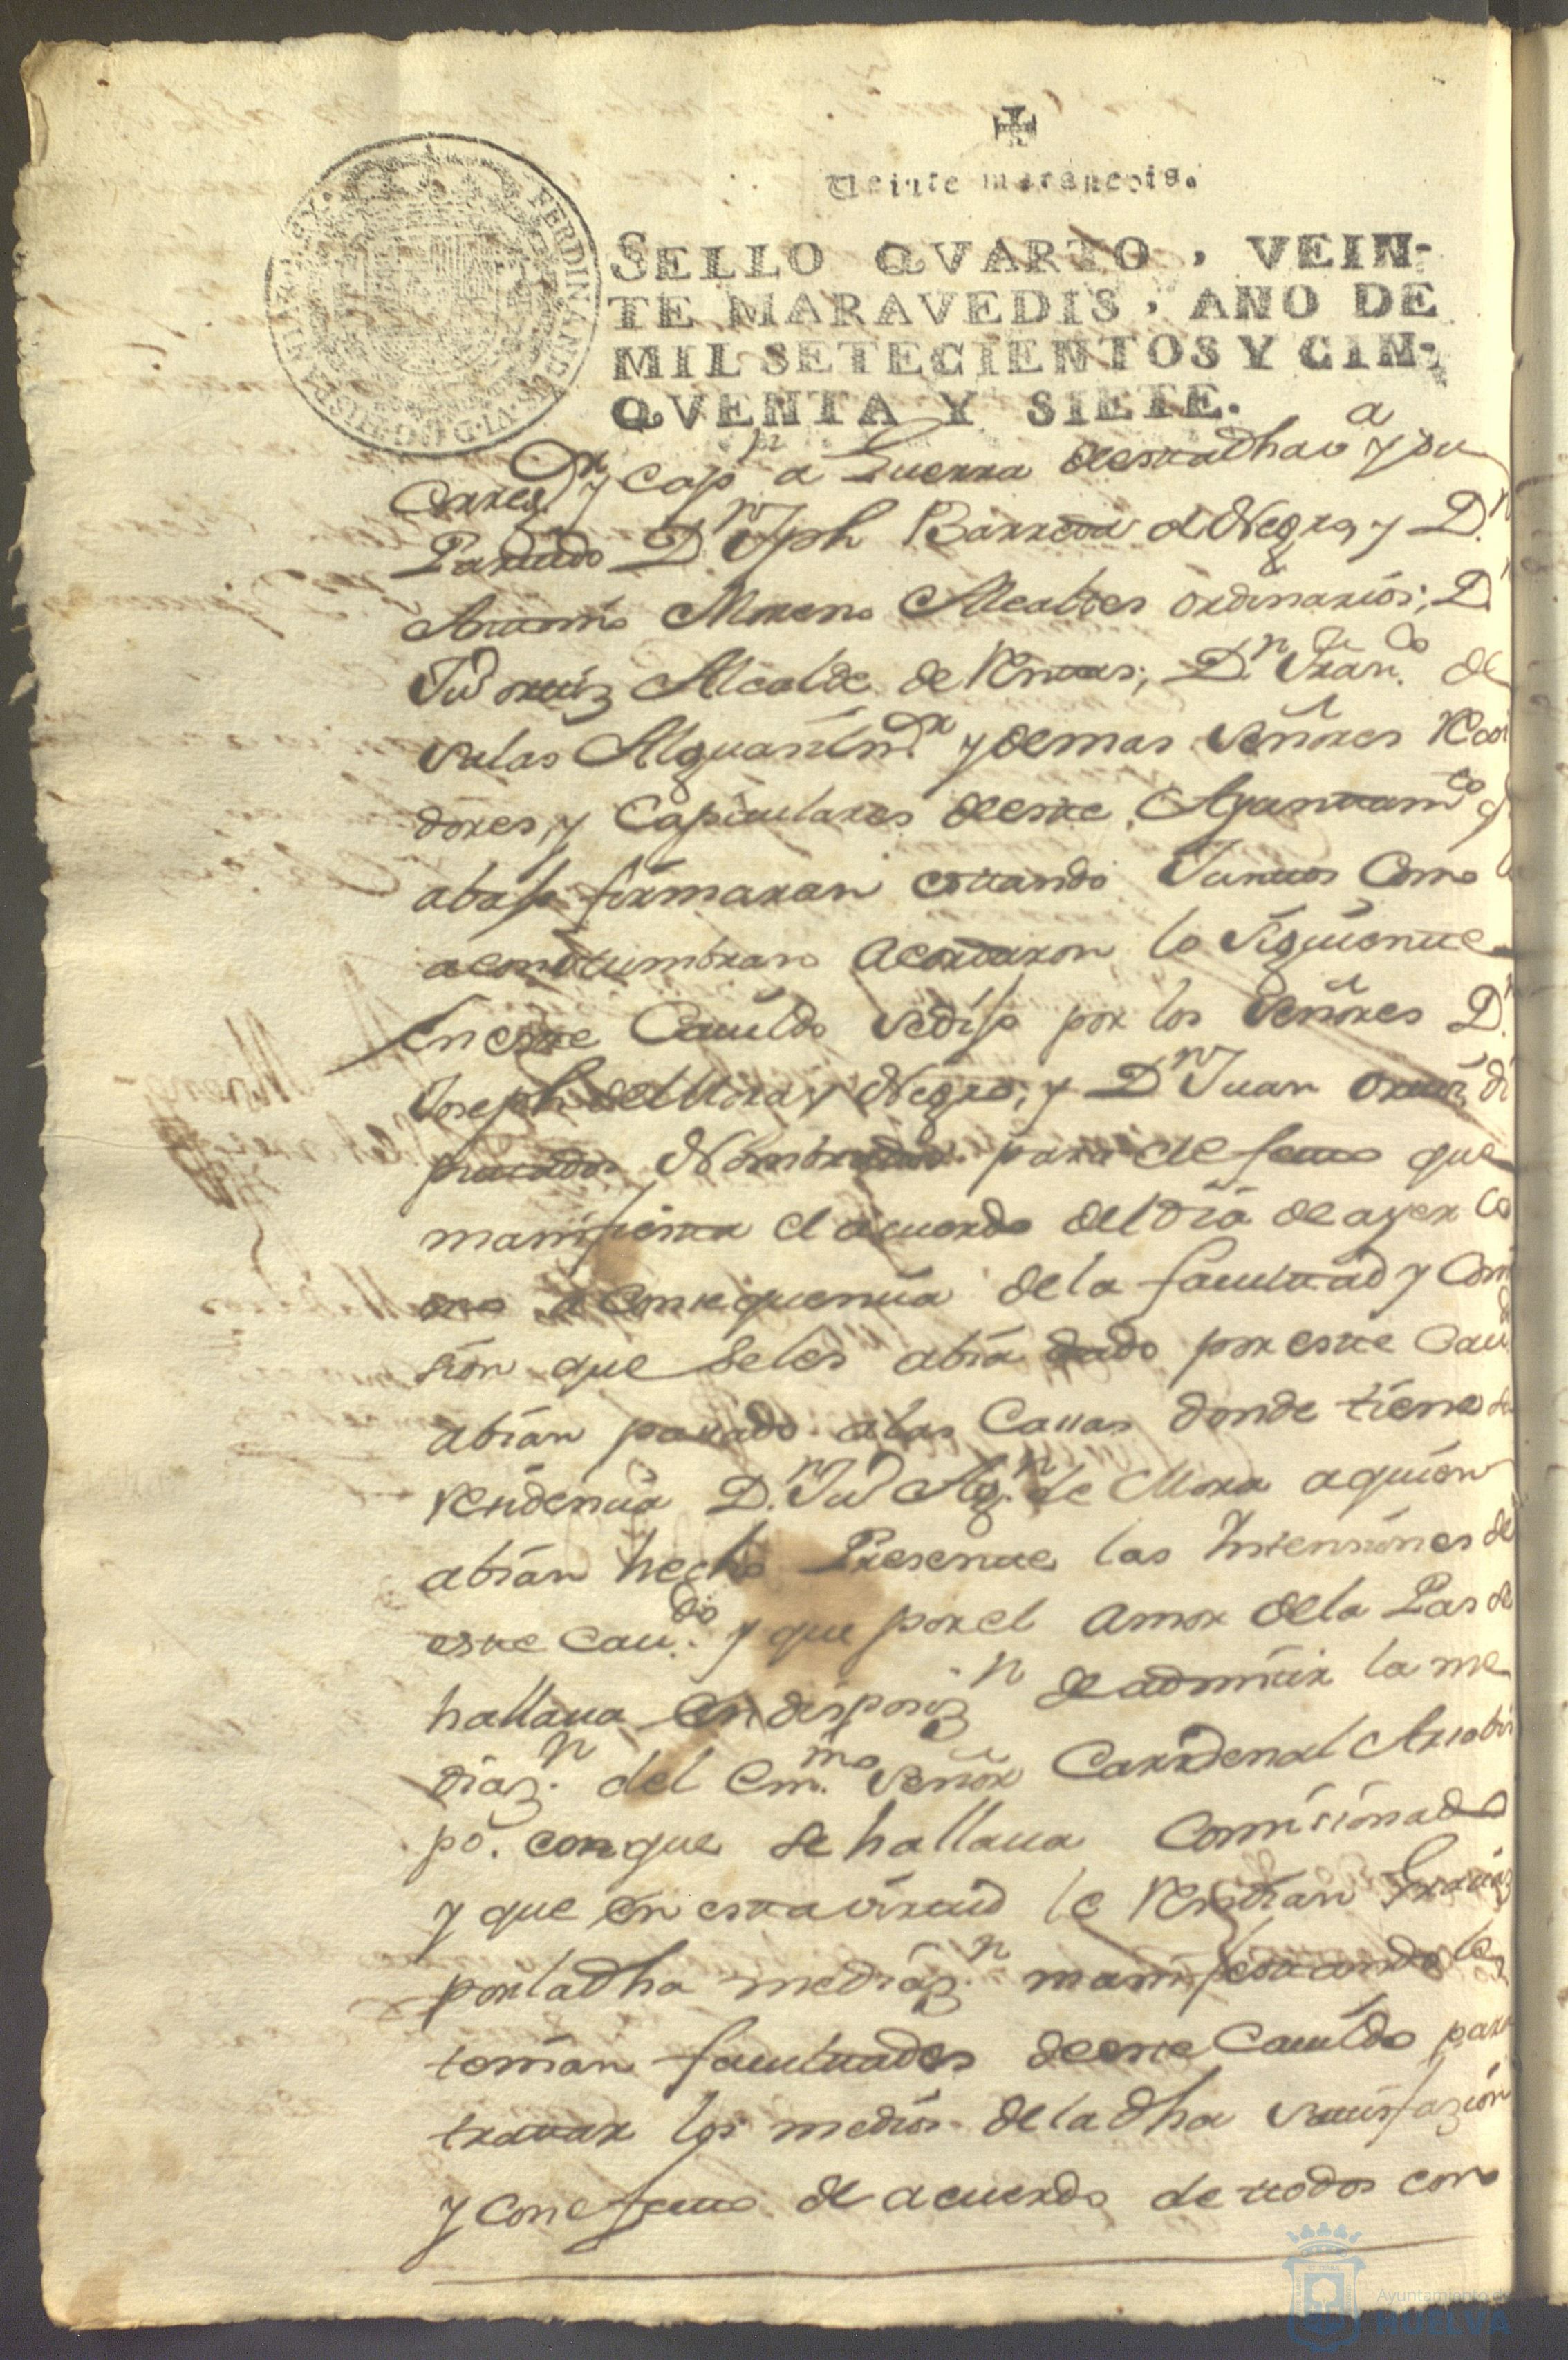 Veinte maravedis.
SELLO QVARTO, VEIN-
TE MARAVEDIS, AÑO DE
MIL SETECIENTOS Y CIN-
QVENTA Y SIETE.
FERDINANDUS·VI·D·G·HISPANIAR·REX·
Correg.or y Cap.n a Guerra desta dha v.a y su
Partido D.n Jph Barreda d Negro, y D.n
Antonio Moreno Alcaldes ordinarios, D.n
Ju.o ortiz Alcalde de Rentas; D.n Fran.co de
salas Alguasil m.or y demas señores Rexi
dores, y Capitulares deste Ayuntam.to q
abajo firmaran estando Juntos Como
acostumbran acordaron lo siguiente
En este Cauildo sedijo por los señores D.n
Joseph de Mora y Negro, y D.n Juan ortiz di
putados Nombrados para el efecto que
manifiesta el acuerdo del dia de ayer co
mo a consequencia de la facultad y Comi
sion que seles abia dado por este Cau.do
abian pasado alas Casas donde tiene su
residencia D.n Ju.o Ag.n de Mora aquien
abian hecho Presente las Intensiones de
este Cau.do y que por el amor dela Pas se
hallaua en disposiz.n de admitir la me
diaz.n del Em.mo señor Cardenal Arsobis
po. con que se hallaua Comisionado
y que en esta virtud le Rendian Gracias
por la dha mediaz.n manifestandole
tenian facultades deeste Cauildo para
tratar los medios dela dha satisfazion
y con efecto de acuerdo de todos con
Ayuntamiento de
HUELVA